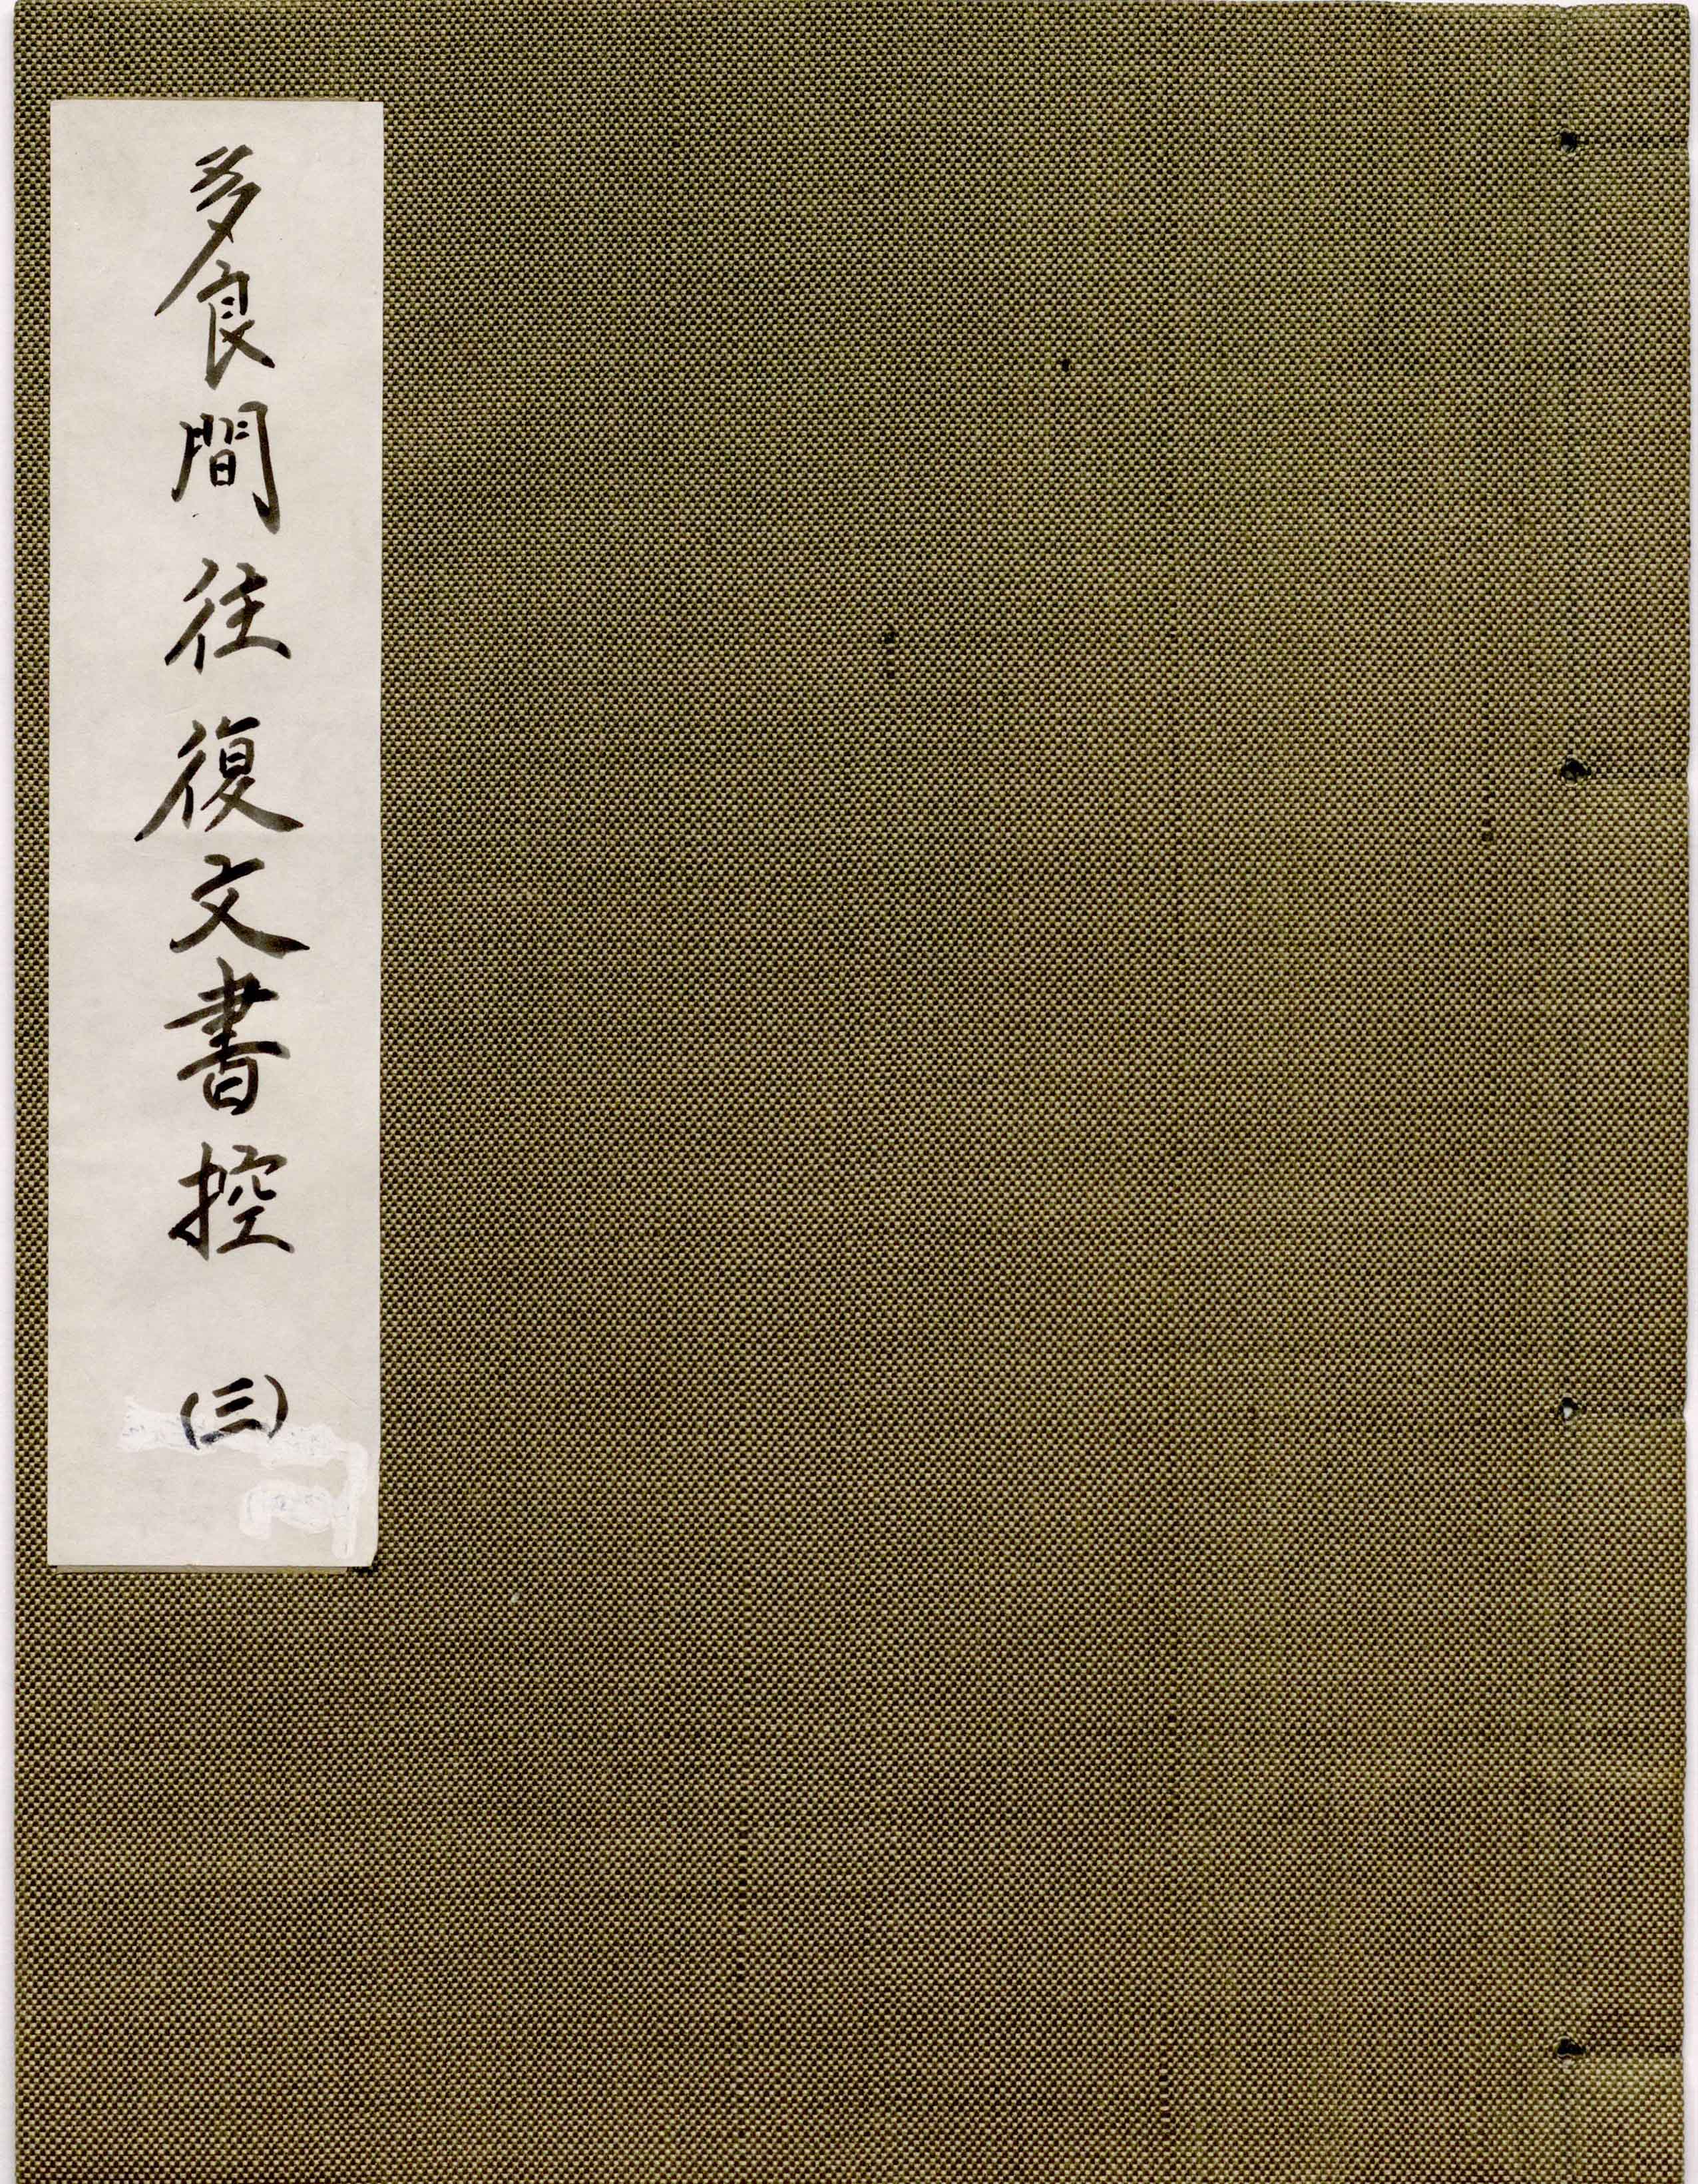 多良間往復文書控 (三)